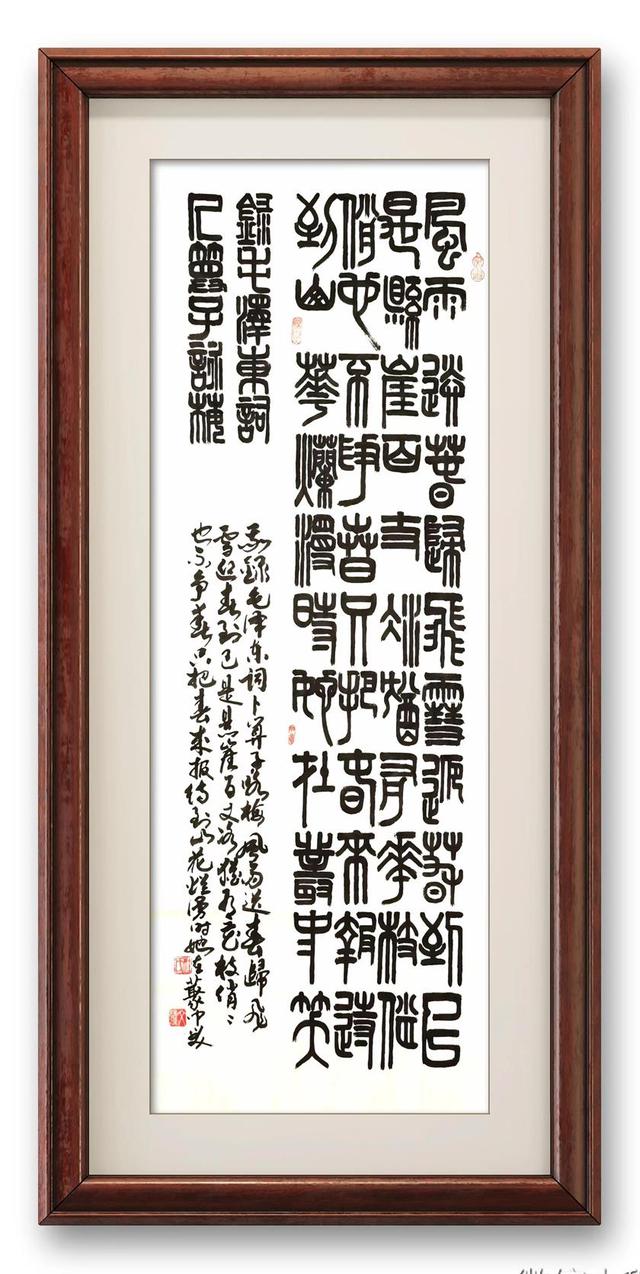 風雨送春歸飛雪迎春到已
是縣崖百丈冰猶有華枝俏
俏也不爭春只把春來報待
到山華爛漫時她在叢中笑
錄毛澤東詞
卜算子詠梅
錄毛泽东词卜算子咏梅風雨送春歸飛
雪迎春到已是悬崖百丈冰犹有花枝俏〻
也不争春只把春来报待到山花烂漫时她在叢中笑